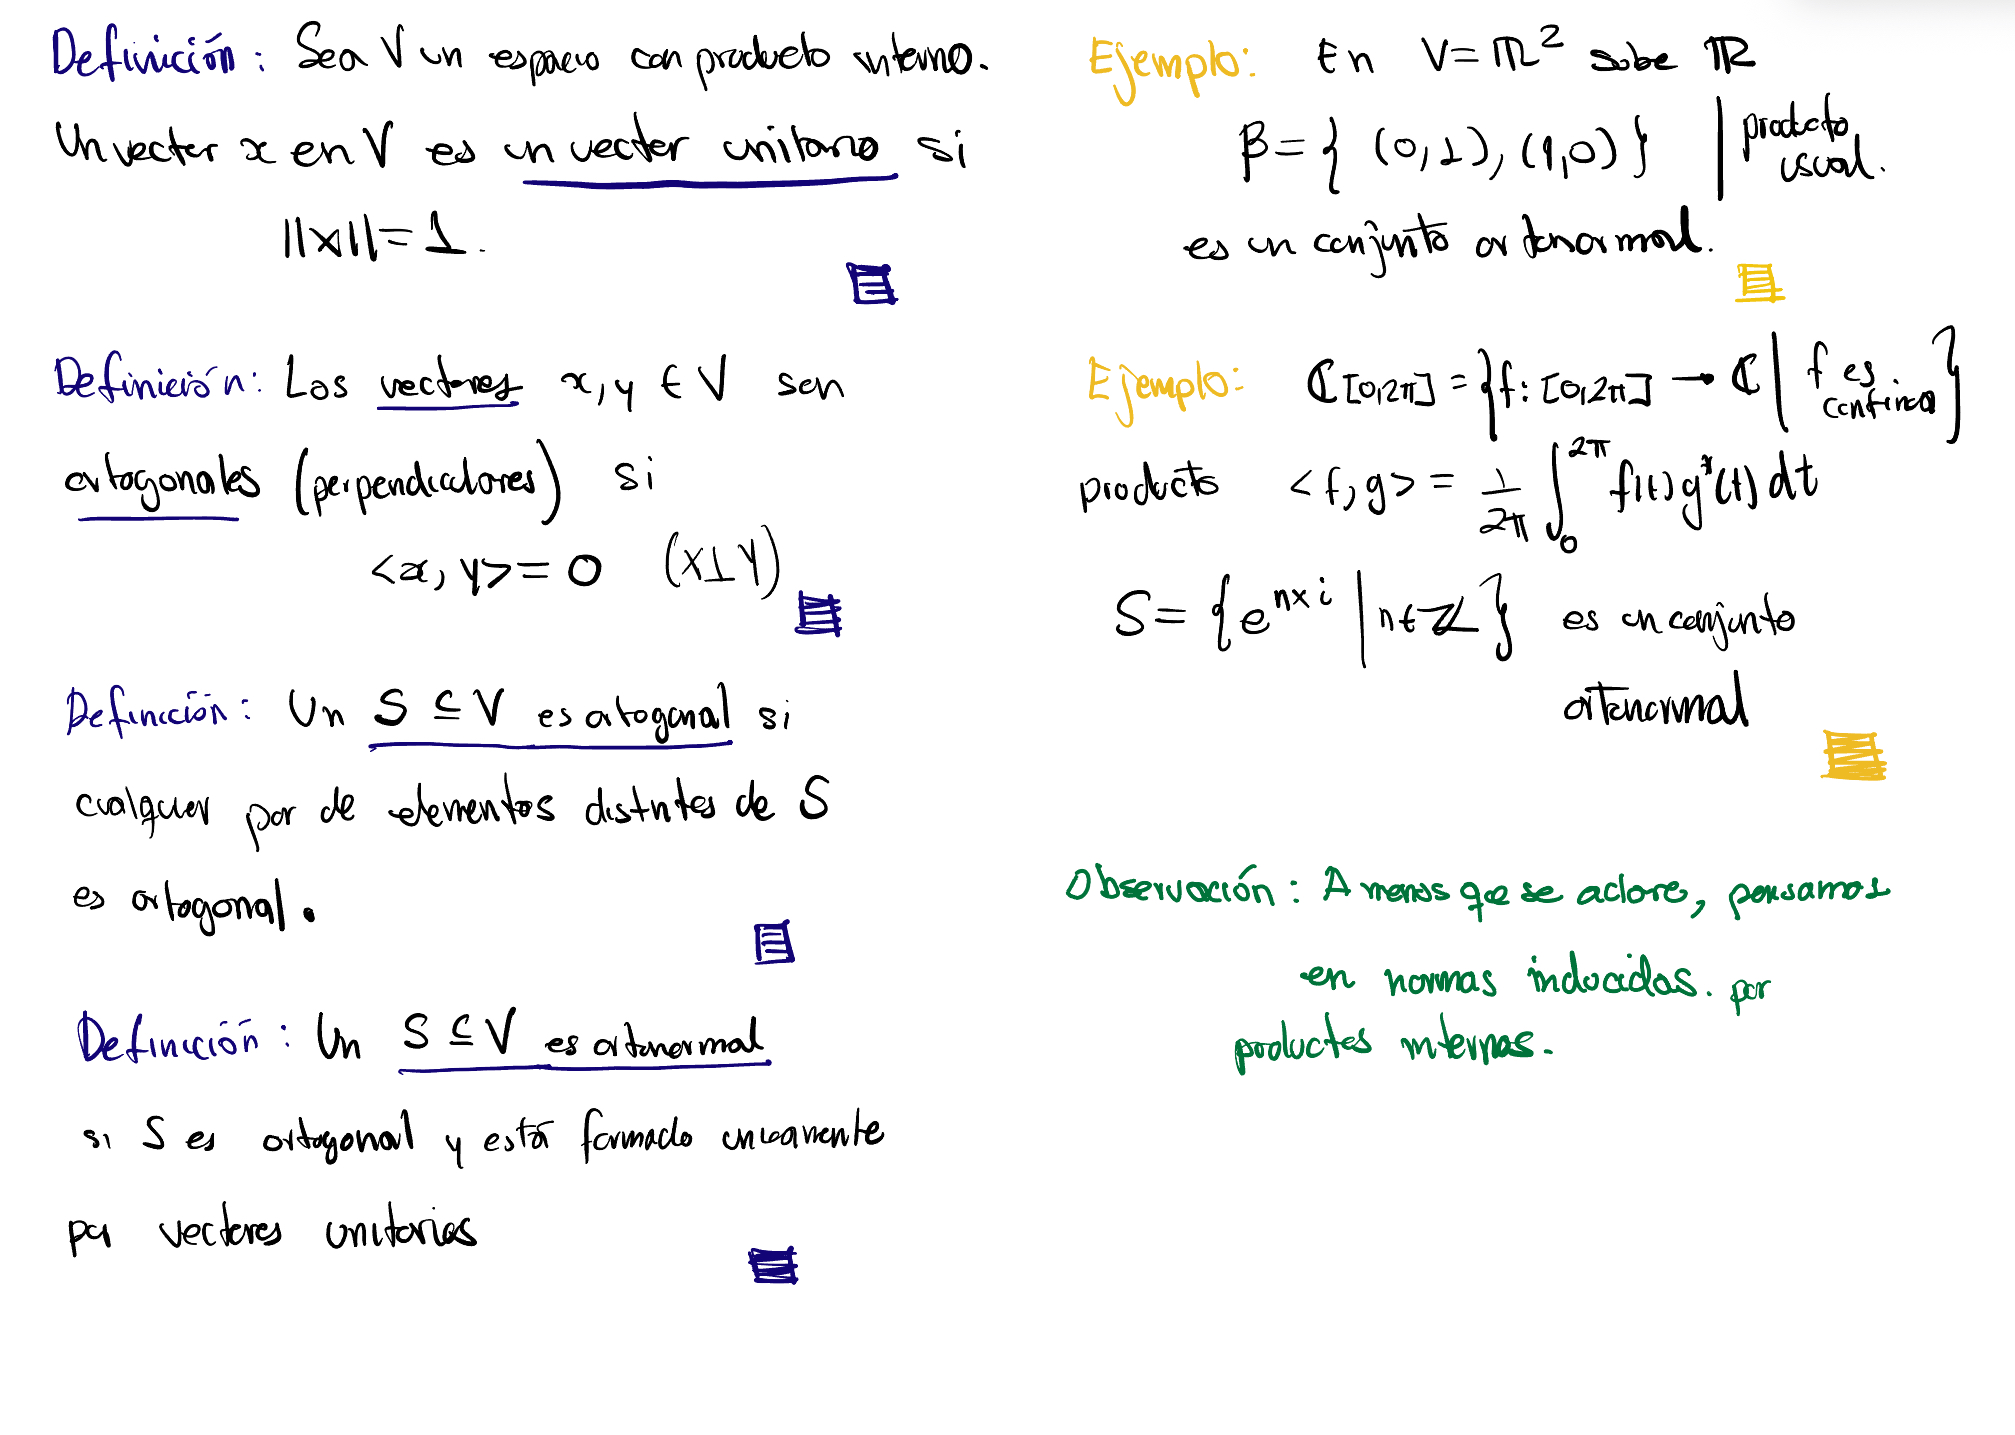 Definición: Sea V un espacio con producto interno.
Un vector x en V es un vector unitario si
||x||=1.
Definición: Los vectores x, y ∈ V son
ortogonales (perpendiculares) si
<x, y>= 0 (x⊥y)
Definición: Un S ⊆ V es ortogonal si
cualquier par de elementos distintos de S
es ortogonal.
Definición: Un S ⊆ V es ortonormal
si S es ortogonal y está formado unicamente
por vectores unitarios
Ejemplo: En V=ℝ² sobe ℝ
β={ (0,1), (1,0) } | producto usual.
es un conjunto ortonormal.
Ejemplo: ℂ[0,2π] = {f: [0,2π] → ℂ | f es continua}
producto <f,g> = 1/2π ∫₀^2π f(t) g*(t) dt
S= {e^nxi | n∈ℤ} es un conjunto
ortonormal
Observación: A menos que se aclare, pensamos
en normas inducidas. por
productos internos.